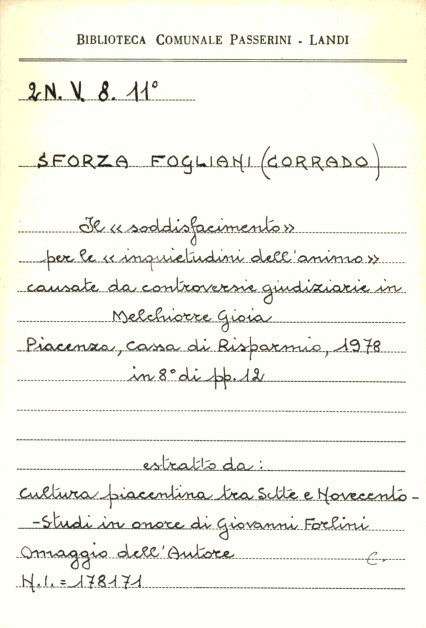 BIBLIOTECA COMUNALE PASSERINI - LANDI
2N. V. 8. 11°
SFORZA FOGLIANI (CORRADO)
Il « soddisfacimento »
per le « inquietudini dell'animo »
causate da controversie giudiziarie in
Melchiorre Gioia
Piacenza, Cassa di Risparmio, 1978
in 8° di pp. 12
estratto da :
Cultura piacentina tra Sette e Novecento -
-Studi in onore di Giovanni Forlini
Omaggio dell'Autore C.
N.I. = 178171